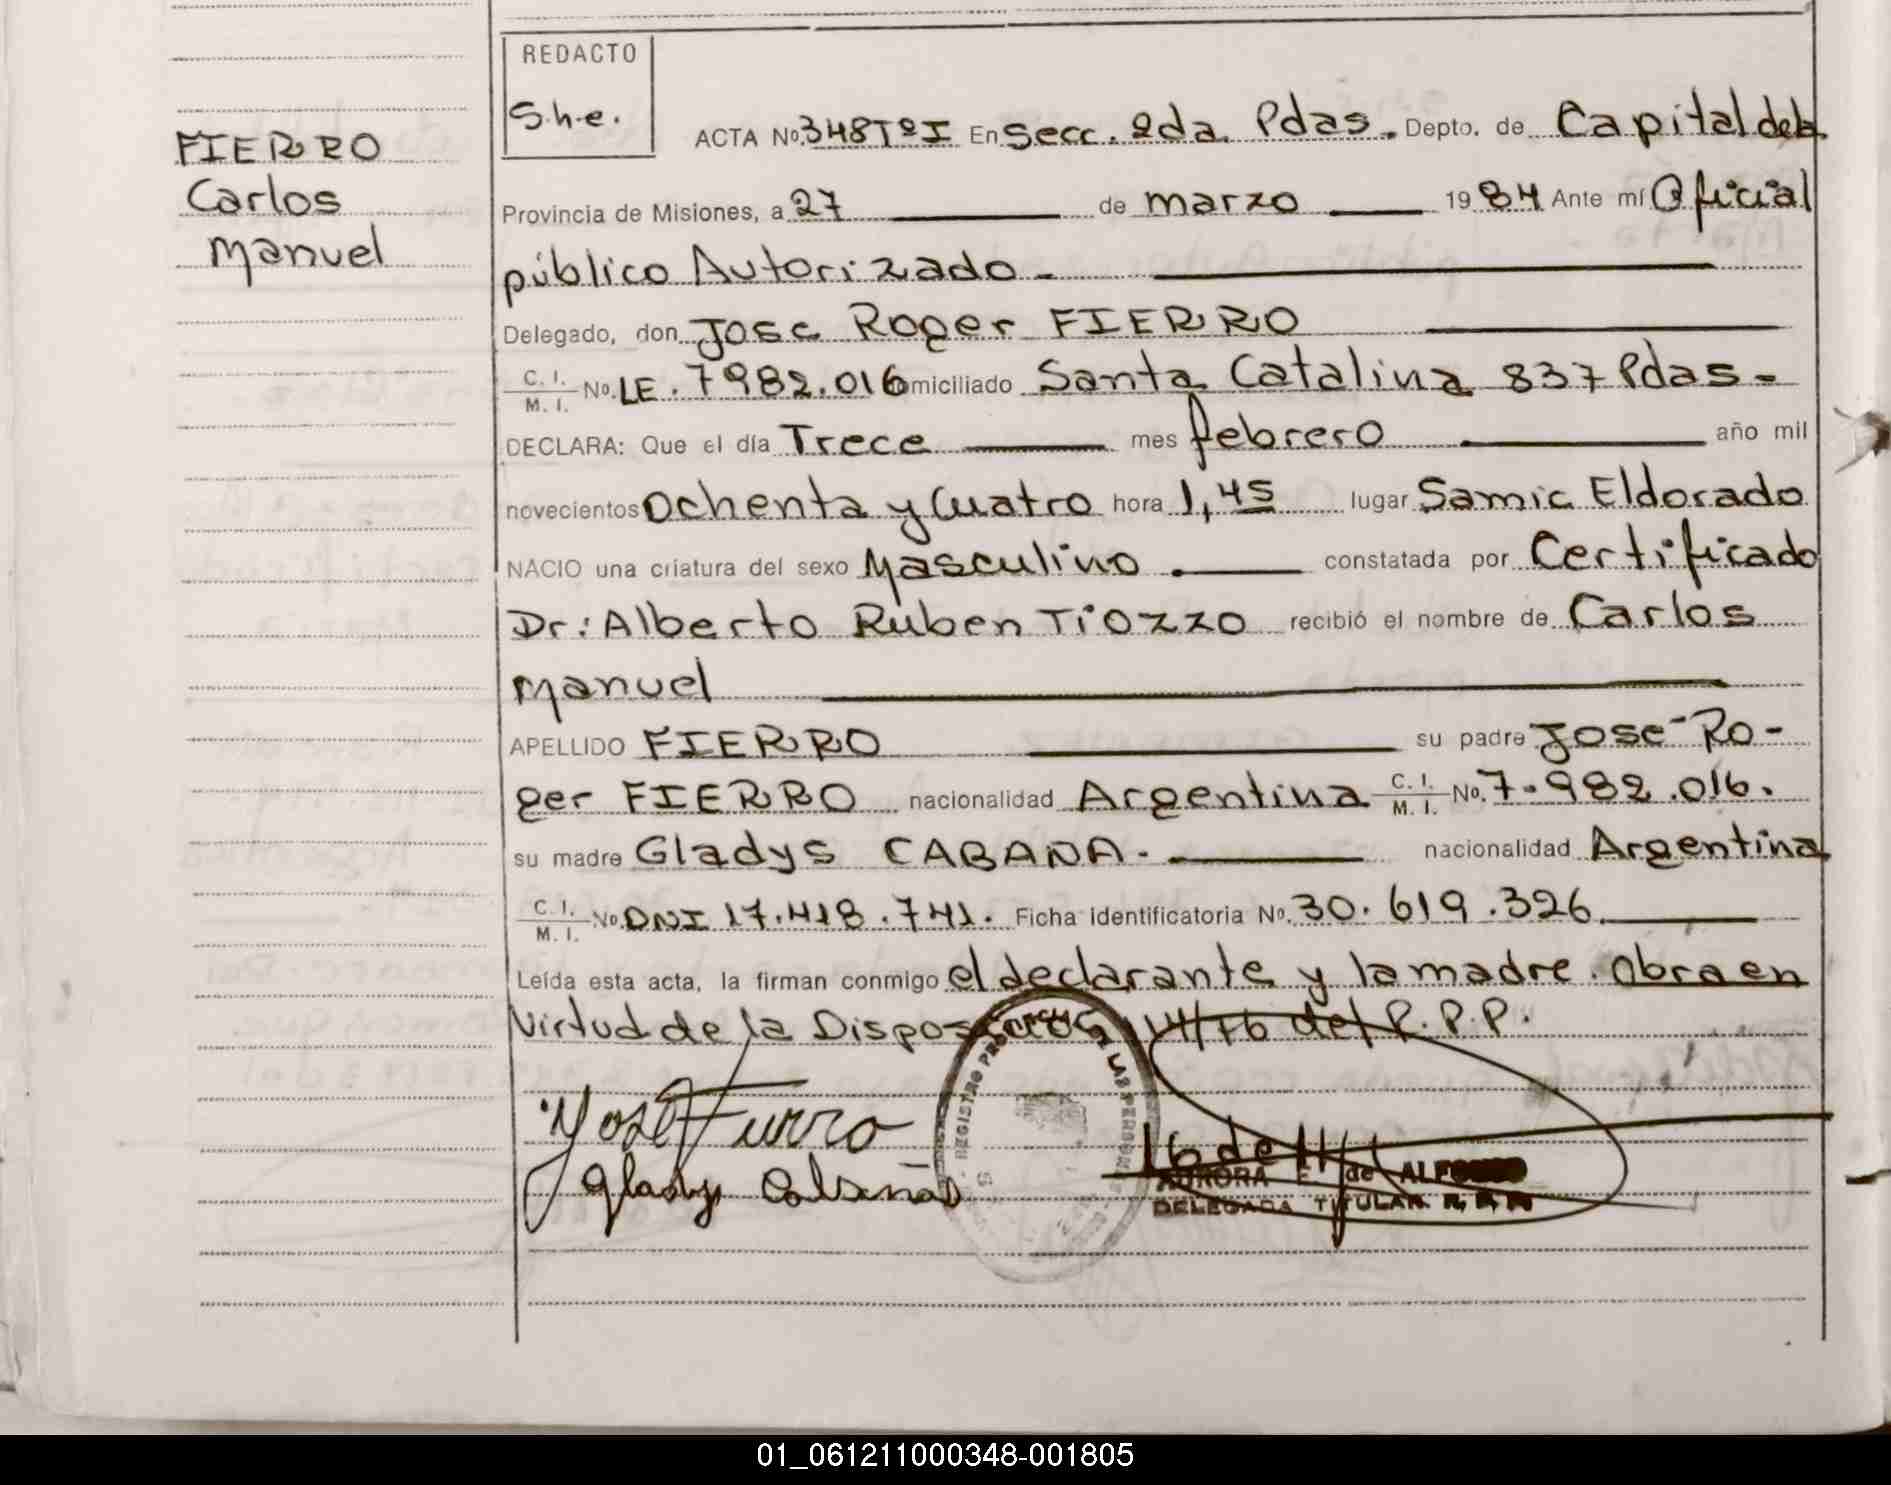 REDACTO
S.h.e.
ACTA Nº 348 Tº I En Secc. 2da. Pdas. Depto. de Capital de la
FIERRO
Carlos
Manuel
Provincia de Misiones, a 27 de marzo 1984 Ante mí Oficial
público Autorizado.
Delegado, don Jose Roger FIERRO
C. I. / M. I. Nº LE. 7982.016 omiciliado Santa Catalina 837 Pdas.
DECLARA: Que el día Trece mes febrero año mil
novecientos Ochenta y Cuatro hora 1,45 lugar Samic Eldorado
NACIO una criatura del sexo Masculino. constatada por Certificado
Dr: Alberto Ruben Tiozzo recibió el nombre de Carlos
Manuel
APELLIDO FIERRO su padre Jose Ro-
ger FIERRO nacionalidad Argentina C. I. / M. I. Nº 7.982.016.
su madre Gladys CABAÑA. nacionalidad Argentina
C. I. / M. I. Nº DNI 17.418.741. Ficha identificatoria Nº 30.619.326.
Leída esta acta, la firman conmigo el declarante y la madre. Obra en
Virtud de la Disposición 14/76 del R.P.P.
REGISTRO LAS PERSONAS
Jose Fierro
Gladys Cabañas
AURORA E. de
DELEGADA TITULAR R. P. P.
01_061211000348-001805